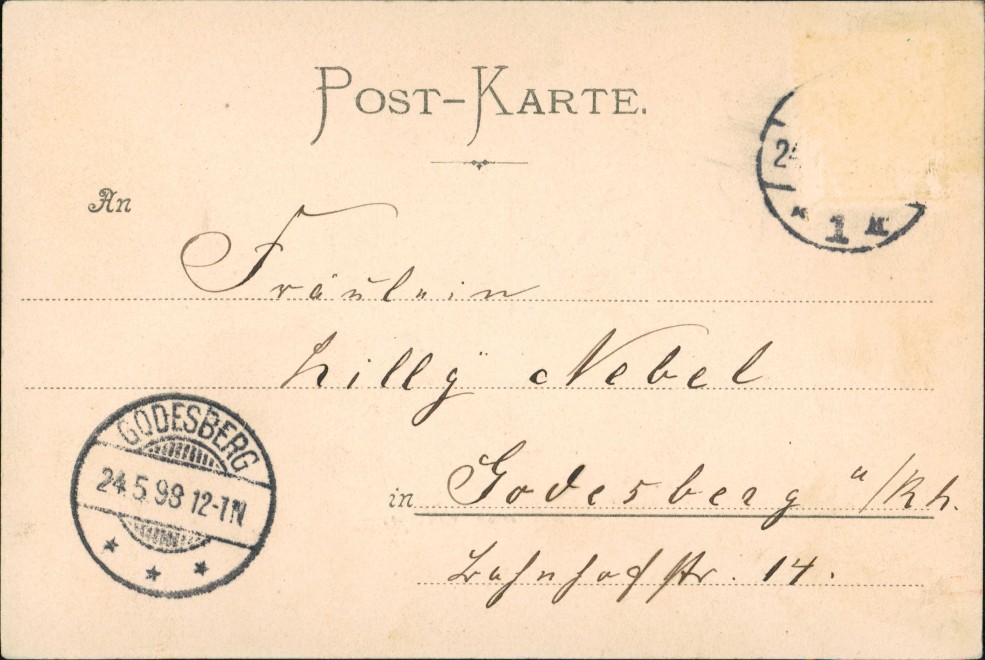 POST-KARTE.
24
* 1 *
An
Fräulein
Lilly Nebel
GODESBERG
24.5.98 12-1N
in Godesberg a/Rh.
Bahnhofstr. 14.